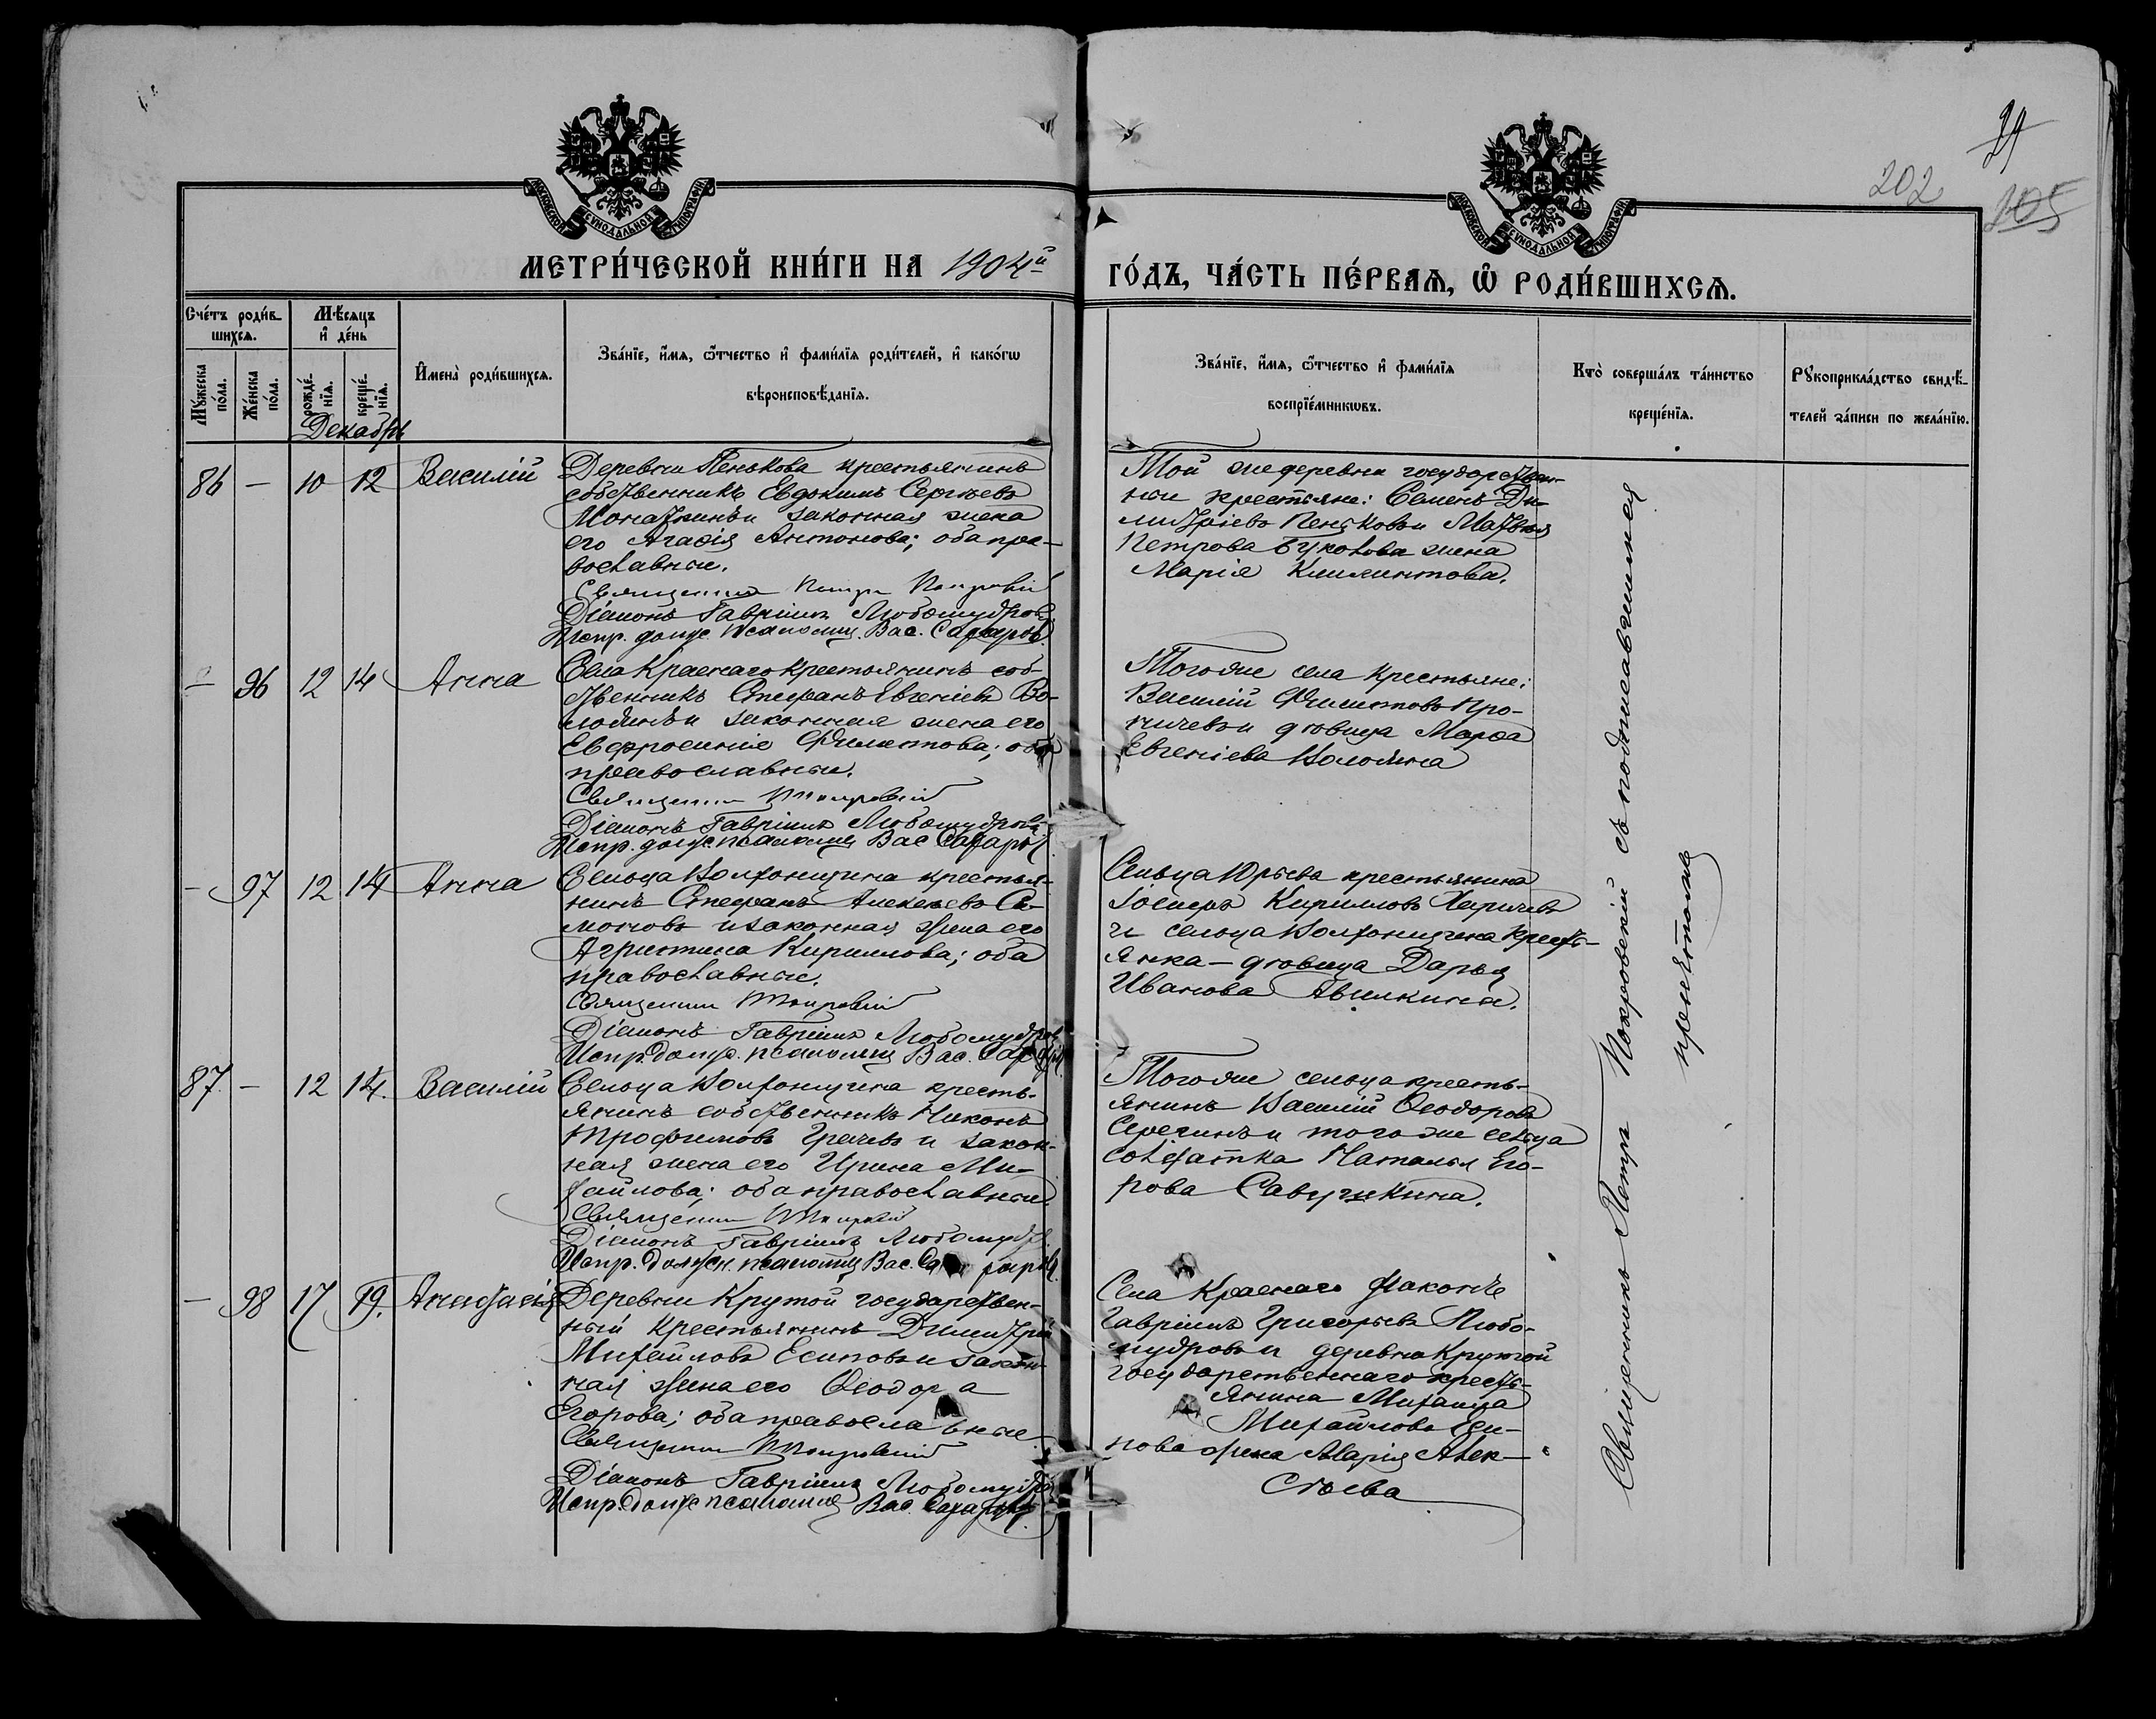 МОСКОВСКОЙ СѴНОДАЛЬНОЙ ТИПОГРАФІИ
МОСКОВСКОЙ СѴНОДАЛЬНОЙ ТИПОГРАФІИ
202
105
МЕТРИ́ЧЕСКОЙ КНИ́ГИ НА 1904й
ГО́ДЪ, ЧА́СТЬ ПЕ́РВАѦ, Ѡ҆ РОДИ́ВШИХСѦ.
Сче́тъ роди́в-
шихся.
Мѣсяцъ
и҆ де́нь
Мꙋ́жеска по́ла.
Же́нска по́ла.
рожде́-
нїя.
креще́-
нїя.
И҆мена̀ роди́вшихся.
Зва́нїе, и҆́мя, ѻ҆́тчество и҆ фами́лїя роди́телей, и҆ како́гѡ
вѣроисповѣ́данїя.
Зва́нїе, и҆́мя, ѻ҆́тчество и҆ фами́лїя
воспрїе́мникѡвъ.
Кто̀ соверша́лъ та́инство
креще́нїя.
Рꙋкоприкла́дство свидѣ́-
телей за́писи по жела́нїю.
Декабрь
86 — 10 12 Василій
Деревни Пенькова крестьянинъ
собственникъ Евдокимъ Сергѣевъ
законная жена
его Агаѳія Антонова; оба пра-
вославные.
Священникъ Петръ Покровскій
Діаконъ Гавріилъ Любомудровъ
Испр. долж. псаломщ. Вас. Сахаровъ
Той же деревни государствен-
ные крестьяне: Семенъ Ди-
митріевъ Пеньковъ и Матвѣя
Петрова жена
Марія Климентова.
— 96 12 14 Анна
Села Краснаго крестьянинъ соб-
ственникъ Стефанъ Евгеніевъ Во-
лодинъ и законная жена его
Евфросинія Филиппова; оба
православные.
Священникъ П. Покровскій
Діаконъ Гавріилъ Любомудровъ
Испр. долж. псаломщ. Вас. Сахаровъ
Того же села крестьяне:
Василій Филипповъ Про-
и дѣвица Марѳа
Евгеніева Володина
— 97 12 14 Анна
Сельца крестья-
нинъ Стефанъ Алексѣевъ Си-
моновъ и законная жена его
Агриппина Кириллова; оба
православные.
Священникъ П. Покровскій
Діаконъ Гавріилъ Любомудровъ
Испр. долж. псаломщ. Вас. Сахаровъ
Сельца Юрьева крестьянинъ
Іосифъ Кирилловъ
и сельца кресть-
янка — дѣвица Дарья
Иванова Авилкина.
87. — 12 14. Василій
Сельца кресть-
янинъ собственникъ Никонъ
Трофимовъ Грачевъ и закон-
ная жена его Ирина Ми-
хайлова; оба православные
Священникъ П. Покровскій
Діаконъ Гавріилъ Любомудр.
Испр. должн. псаломщ. Вас. Сахаровъ
Того же сельца кресть-
янинъ Василій Ѳеодоровъ
Серегинъ и того же сельца
солдатка Наталья Его-
рова Савушкина.
— 98 17 19. Анастасія
Деревни Крутой государствен-
ный крестьянинъ Димитрій
Михаиловъ Есиповъ и закон-
ная жена его Ѳеодора
Егорова; оба православные
Священникъ П. Покровскій
Діаконъ Гавріилъ Любомудровъ
Испр. долж. псаломщ. Вас. Сахаровъ
Села Краснаго діаконъ
Гавріилъ Григорьевъ Любо-
мудровъ и деревни Крутой
государственнаго кресть-
янина Михаила
Михайлова Еси-
пова жена Марія Алек-
сѣева
Священникъ Петръ Покровскій съ подписавшимся
причтомъ